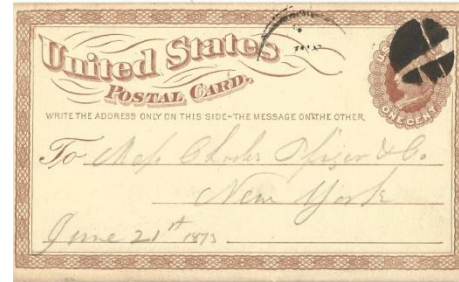 United States
POSTAL CARD.
WRITE THE ADDRESS ONLY ON THIS SIDE-THE MESSAGE ON THE OTHER.
ONE CENT
To Mess Charles Pfizer & Co.
New York
June 21st 1873